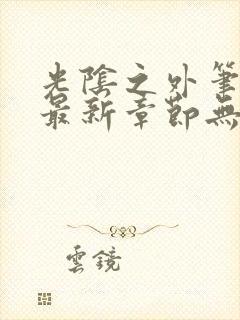 光陰之外筆
最新章節無
雲鏡